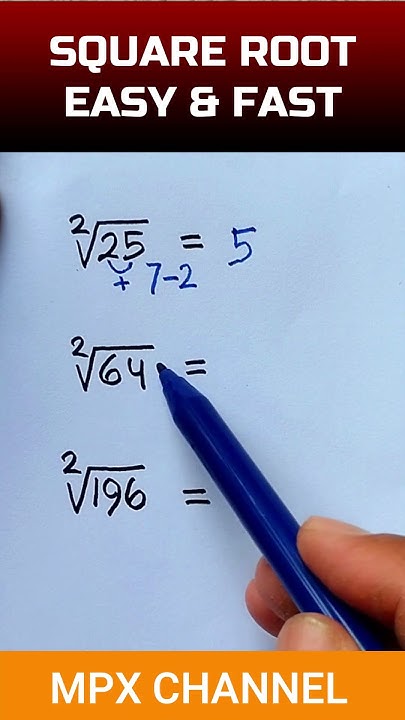 SQUARE ROOT
EASY & FAST
²√25 = 5
+ 7-2
²√64 =
²√196 =
MPX CHANNEL